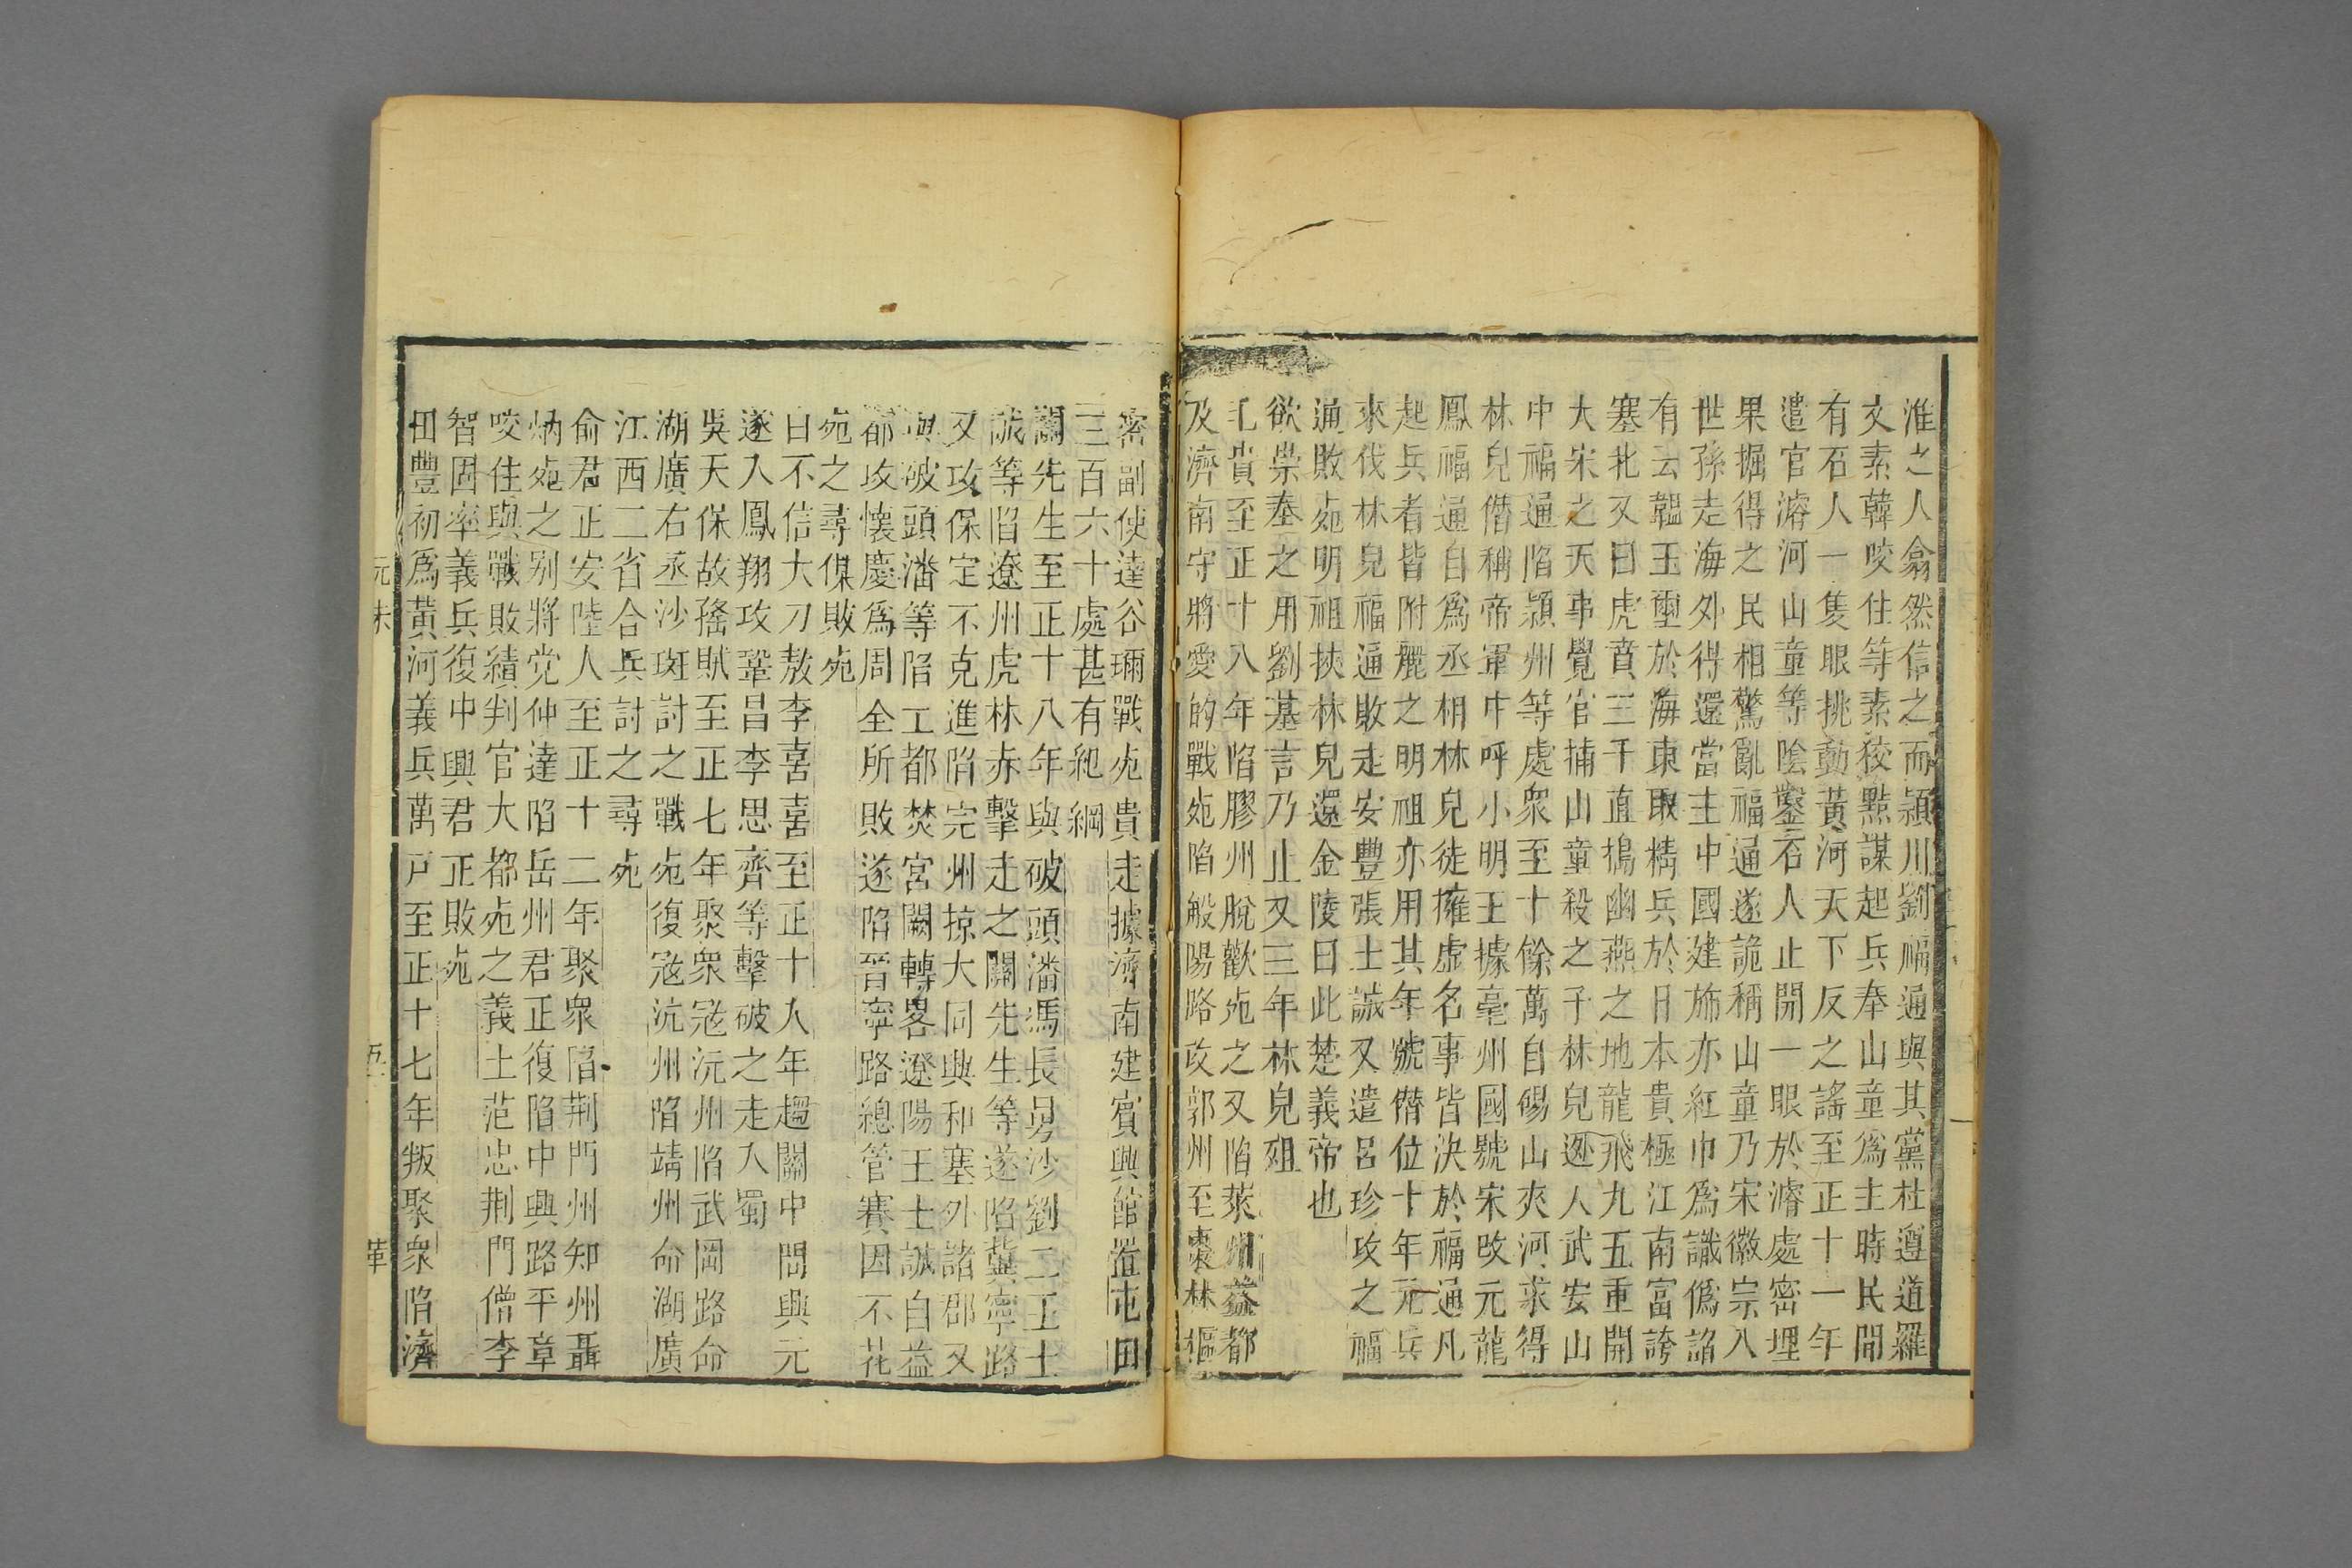 淮之人翕然信之而頴川劉福通與其黨杜遵道羅
文素韓咬住等素狡黠謀起兵奉山童爲主時民間
有石人一隻眼挑動黃河天下反之謠至正十一年
遣官濬河山童等陰鑿石人止開一眼於濬處密埋
果掘得之民相驚亂福通遂詭稱山童乃宋徽宗八
世孫走海外得還當主中國建斾亦紅巾爲識僞詔
有云韞玉璽於海東取精兵於日本貴極江南富誇
塞北又曰虎賁三千直搗幽燕之地龍飛九五重開
大宋之天事覺官捕山童殺之子林兒迯人武安山
中福通陷頴州等處衆至十餘萬自碭山夾河求得
林兒僭稱帝軍中呼小明王據亳州國號宋改元龍
鳳福通自爲丞相林兒徒擁虛名事皆決於福通凡
起兵者皆附麗之明祖亦用其年號僭位十年元兵
來伐林兒福通敗走安豐張士誠又遣呂珍攻之福
通敗死明祖挾林兒還金陵曰此楚義帝也
欲崇奉之用劉基言乃止又三年林兒殂
毛貴至正十八年陷膠州脫歡死之又陷萊州益都
及濟南守將愛的戰死陷般陽路攻郭州至棗林樞
密副使達谷珎戰死貴走據濟南建賓興館置屯田
三百六十處甚有紀綱
關先生至正十八年與破頭潘馮長舅沙劉二王士
誠等陷遼州虎林赤擊走之關先生等遂陷冀寧路
又攻保定不克進陷完州掠大同興和塞外諸郡又
與破頭潘等陷上都焚宮闕轉畧遼陽王士誠自益
都攻懷慶爲周全所敗遂陷晉寧路總管賽因不花
死之尋俱敗死
白不信大刀敖李喜喜至正十八年趨關中間興元
遂入鳳翔攻鞏昌李思齊等擊破之走入蜀
吳天保故猺賦至正七年聚衆冦沅州陷武岡路命
湖廣右丞沙斑討之戰死復冦沅州陷靖州命湖廣
江西二省合兵討之尋死
俞君正安陸人至正十二年聚衆陷荆門州知州聶
炳死之别將党仲達陷岳州君正復陷中興路平章
咬住與戰敗績判官大都死之義士范忠荆門僧李
智固率義兵復中興君正敗死
田豐初爲黃河義兵萬戸至正十七年叛聚衆陷濟
元末
五
革